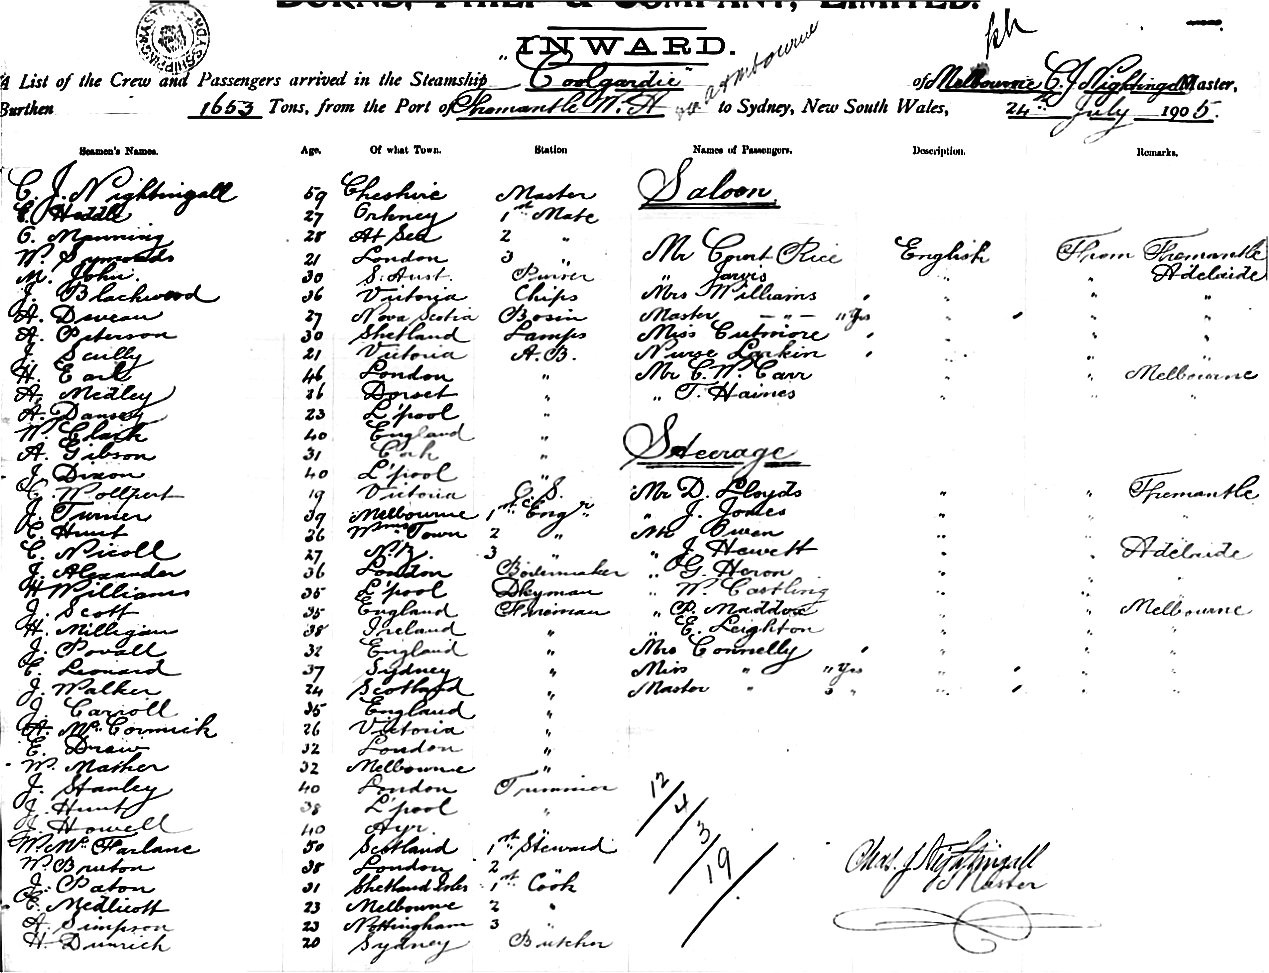 BURNS, PHILP & COMPANY, LIMITED.
INWARD.
A List of the Crew and Passengers arrived in the Steamship "Coolgardie" of Melbourne C. J. Nightingall Master,
Burthen 1653 Tons, from the Port of Fremantle W. A. to Sydney, New South Wales, 24th July 1905.
Seamen's Names. Age. Of what Town. Station Names of Passengers. Description. Remarks.
C. J. Nightingall 59 Cheshire Master Saloon
Heddle 27 Orkney 1st Mate
Manning 28 At Sea 2 "
W. Symonds 21 London 3 " Mr Court Rice English From Fremantle
M. John 30 S. Aust. Purser " Jarvis " " Adelaide
J. Blackwood 36 Victoria Chips Mrs Williams " " "
A. Deveau 27 Nova Scotia Bosin Master — " — " Yrs " " "
A. Peterson 30 Shetland Lamps Miss Cutmore " " "
J. Scully 21 Victoria A.B. Nurse Larkin " " "
H. Earl 46 London " Mr C. W. Carr " " Melbourne
A. Medley 26 Dorset " " T. Haines " " "
A. Dansey 23 L'pool "
W. Clark 40 England " Steerage
A. Gibson 31 Cork "
J. Dixon 40 L'pool "
C. Wollpert 19 Victoria O.S. Mr D. Lloyds " " Fremantle
J. Turner 39 Melbourne 1st Engr " J. Jones " " "
C. Hunt 26 Wms Town 2 " Mr Owen " " "
C. Nicoll 27 N.Z. 3 " " J. Hewett " " Adelaide
J. Alexander 36 London " G. Heron " " "
H Williams 35 L'pool Dkyman " W. Castling " " "
J. Scott 35 England Fireman " P. Maddox " " Melbourne
H. Milligan 38 Ireland " " E. Leighton " " "
J. Povall 32 England " Mrs Connelly " " "
C. Leonard 37 Sydney " Miss " " Yrs " " "
J. Walker 24 Scotland " Master " 3 " " " "
J. Carroll 35 England "
A. McCormick 26 Victoria "
E. Draw 32 London "
W. Mather 32 Melbourne "
J. Stanley 40 London Trimmer
J. Hunt 38 L'pool "
J. Howell 40 Ayr. "
W. McFarlane 50 Scotland 1st Steward
W. Buxton 38 London 2 "
J. Paton 31 Shetland Isles 1st Cook
C. Medlicott 23 Melbourne 2 "
A. Simpson 23 Nottingham 3 "
H. Dimrich 20 Sydney Butcher
12/4/3/19/
Chas. J. Nightingall
Master